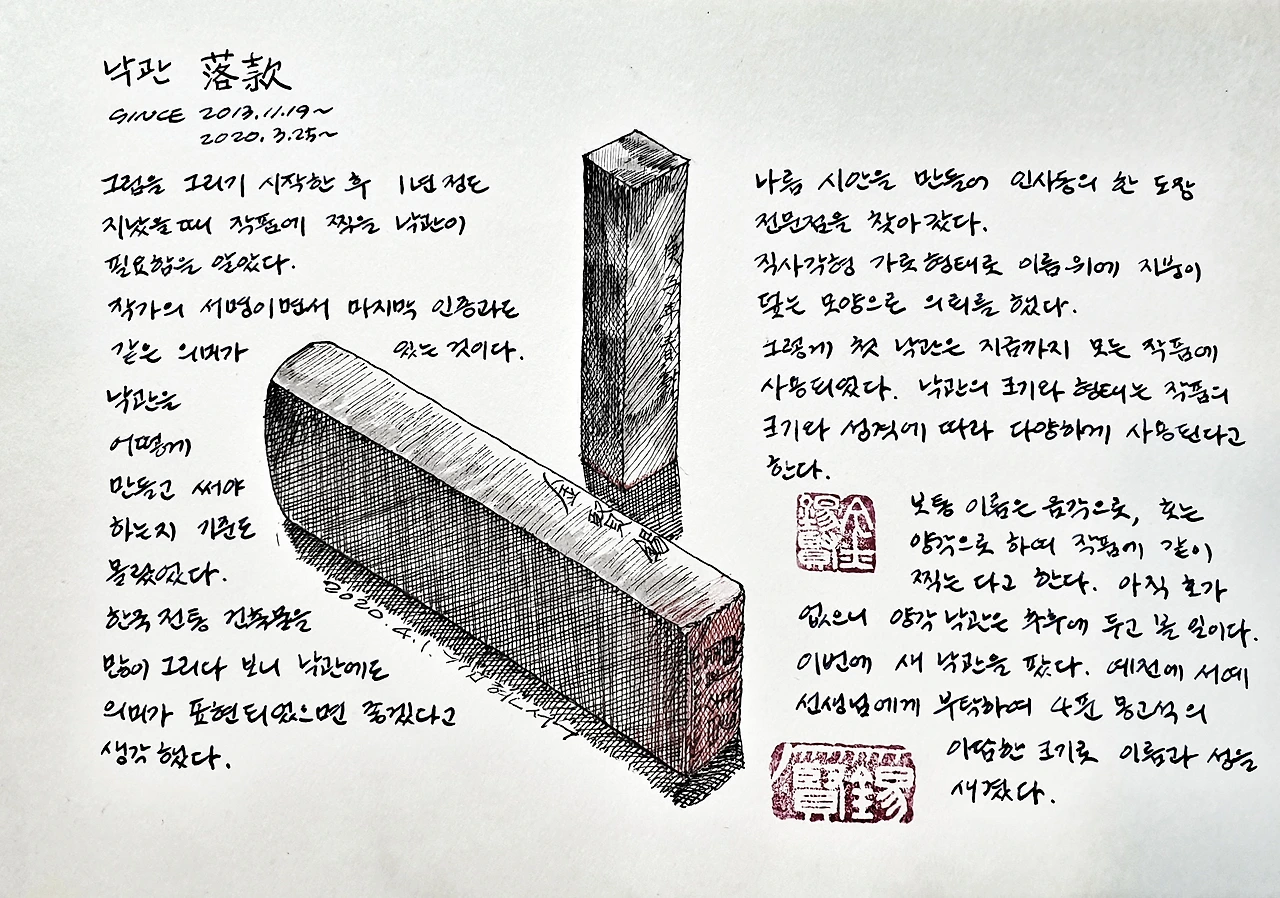 낙관 落款
SINCE 2013.11.19~
2020.3.25~
그림을 그리기 시작한 후 1년 정도
지났을 때 작품에 찍을 낙관이
필요함을 알았다.
작가의 서명이면서 마지막 인증과도
같은 의미가 있는 것이다.
낙관을
어떻게
만들고 써야
하는지 기준도
몰랐었다.
한국 전통 건축물을
많이 그리다 보니 낙관에도
의미가 표현되었으면 좋겠다고
생각했다.
나름 시안을 만들어 인사동의 한 도장
전문점을 찾아갔다.
직사각형 가로형태로 이름 위에 지붕이
덮는 모양으로 의뢰를 했다.
그렇게 첫 낙관은 지금까지 모든 작품에
사용되었다. 낙관의 크기와 형태는 작품의
크기와 성격에 따라 다양하게 사용된다고
한다.
보통 이름은 음각으로, 호는
양각으로 하여 작품에 같이
찍는다고 한다. 아직 호가
없으니 양각 낙관은 추후에 두고 볼 일이다.
이번에 새 낙관을 팠다. 예전에 서예
선생님에게 부탁하여 4푼 몽고석의
아담한 크기로 이름과 성을
새겼다.
金賢
2020.4.1.